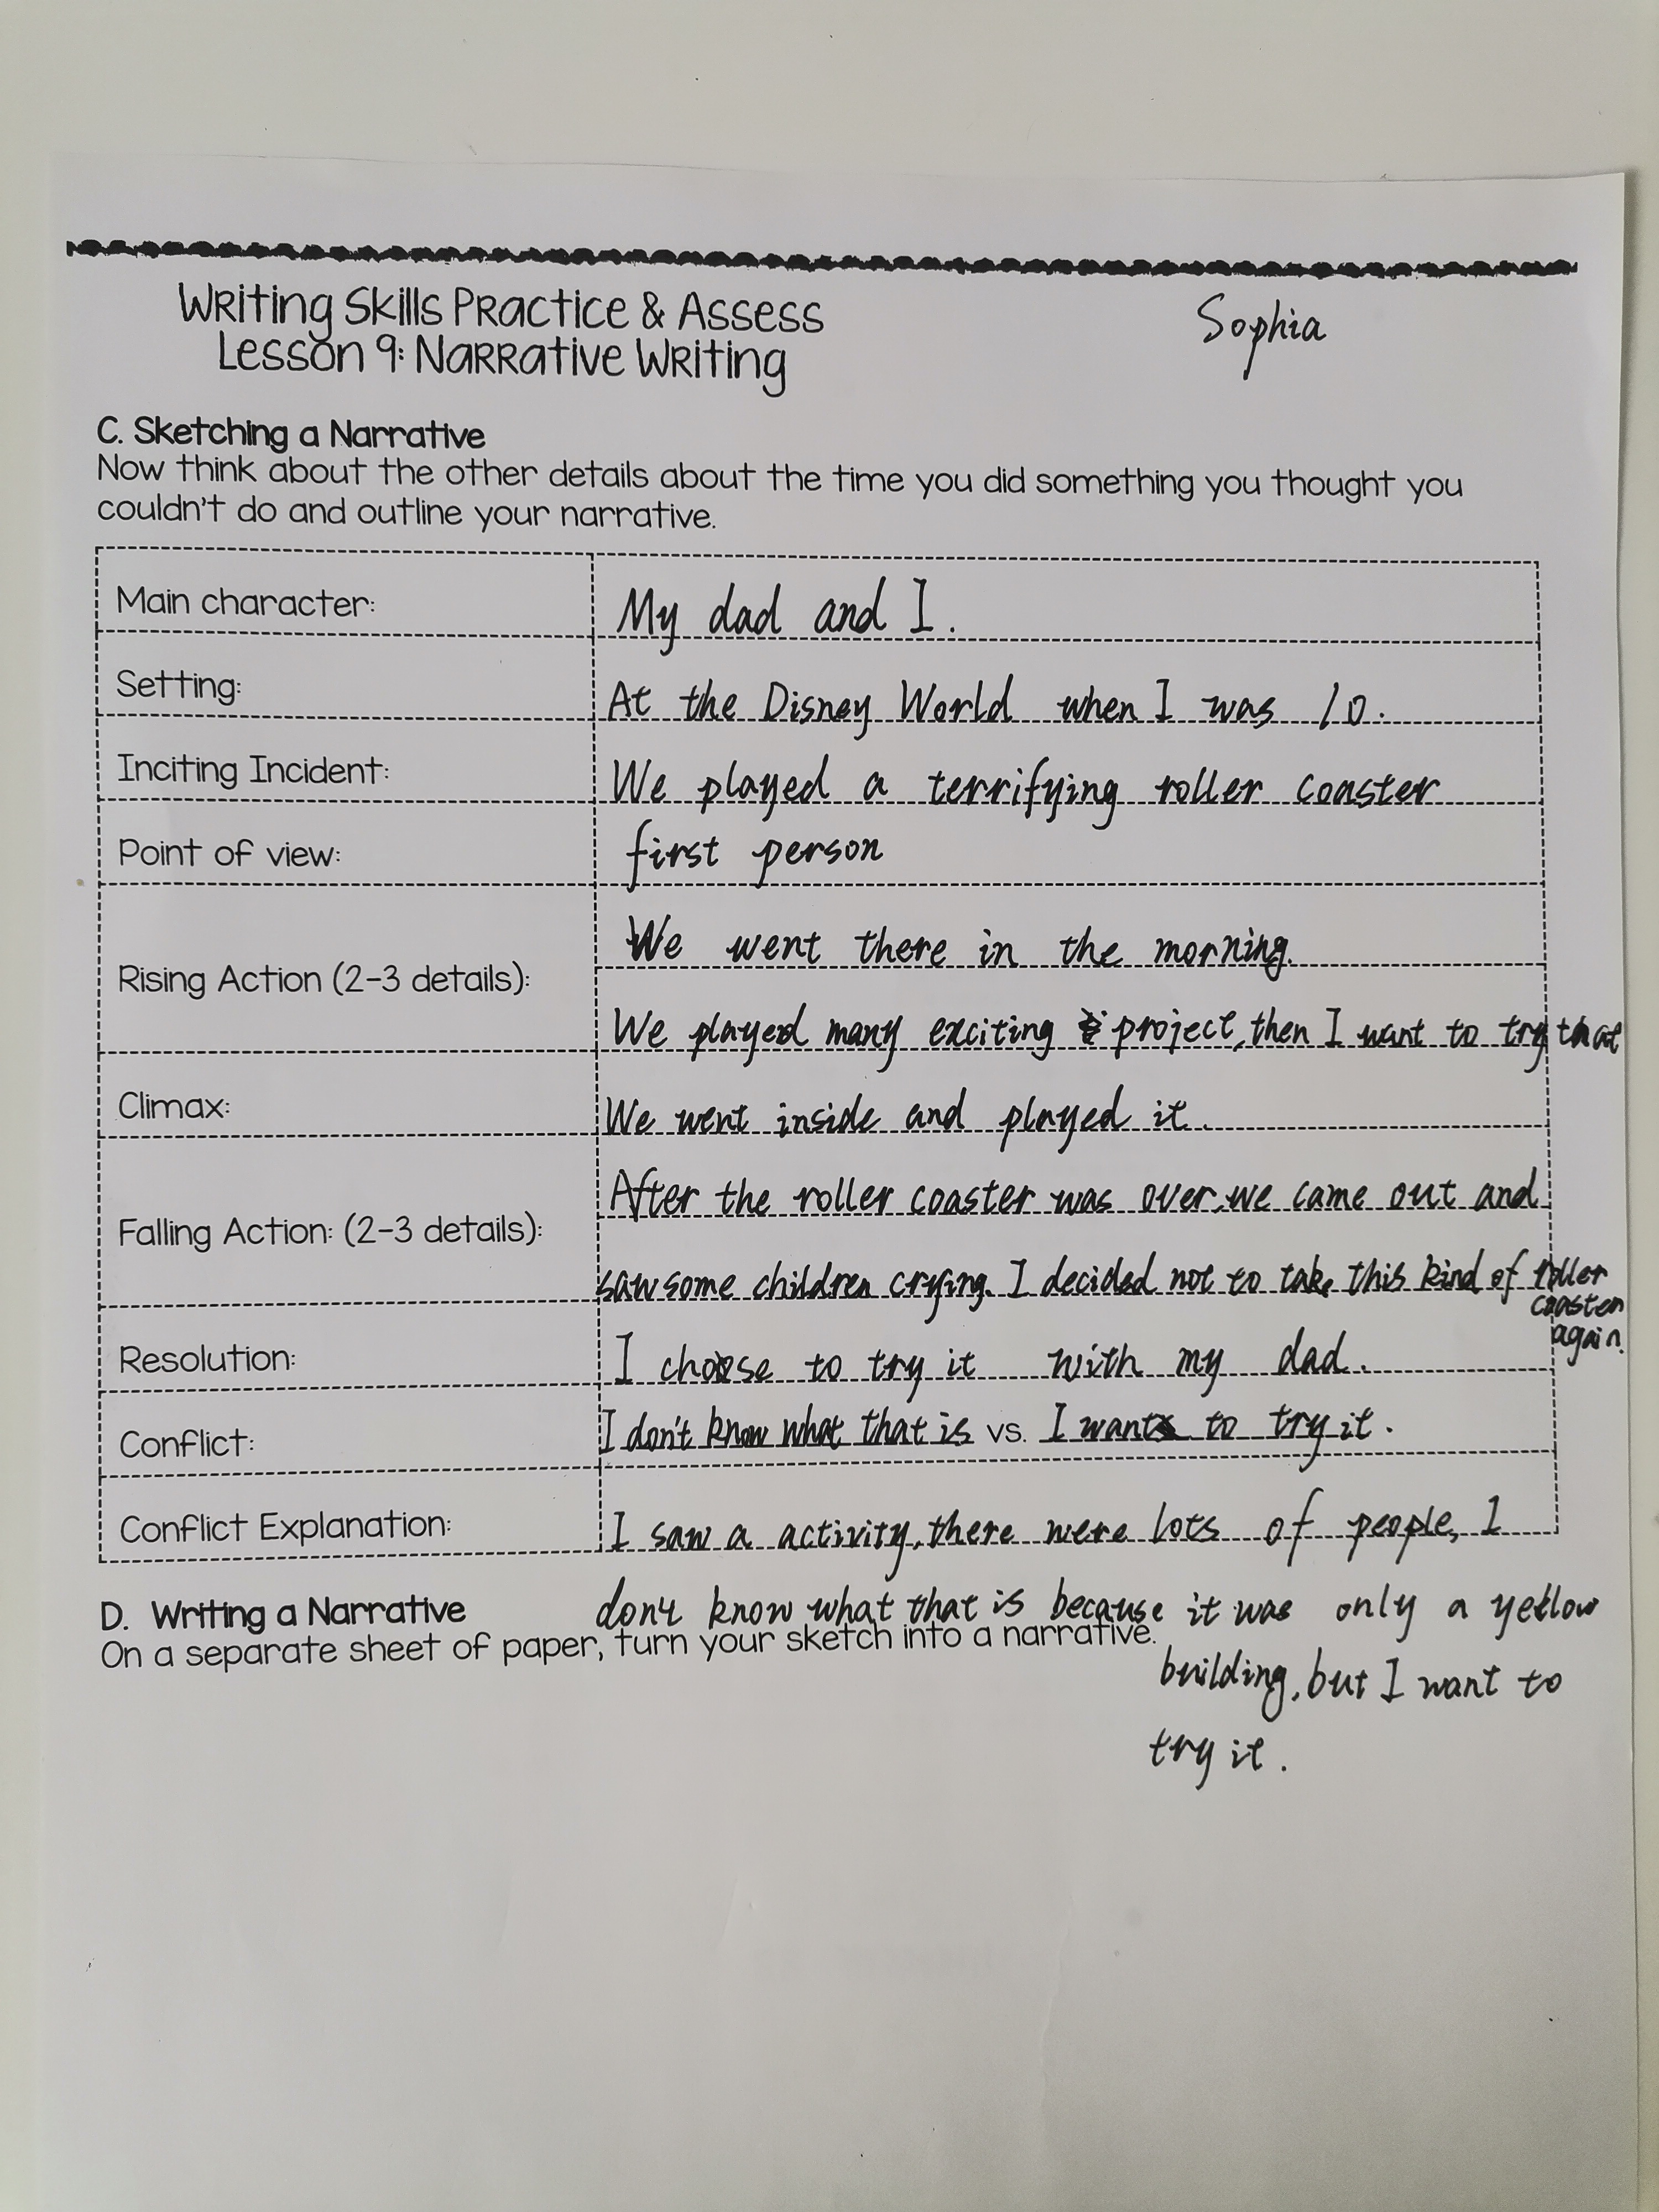 Writing Skills Practice & Assess
Lesson 9: Narrative Writing
Sophia
C. Sketching a Narrative
Now think about the other details about the time you did something you thought you
couldn't do and outline your narrative.
Main character:
My dad and I.
Setting:
At the Disney World when I was 10.
Inciting Incident:
We played a terrifying roller coaster
Point of view:
first person
Rising Action (2-3 details):
We went there in the morning.
We played many exciting project, then I want to try that
Climax:
We went inside and played it.
Falling Action: (2-3 details):
After the roller coaster was over, we came out and
saw some children crying. I decided not to take this kind of roller
coaster
again.
Resolution:
I choose to try it with my dad.
Conflict:
I don't know what that is vs. I want to try it.
Conflict Explanation:
I saw a activity, there were lots of people, I
don't know what that is because it was only a yellow
building, but I want to
try it.
D. Writing a Narrative
On a separate sheet of paper, turn your sketch into a narrative.